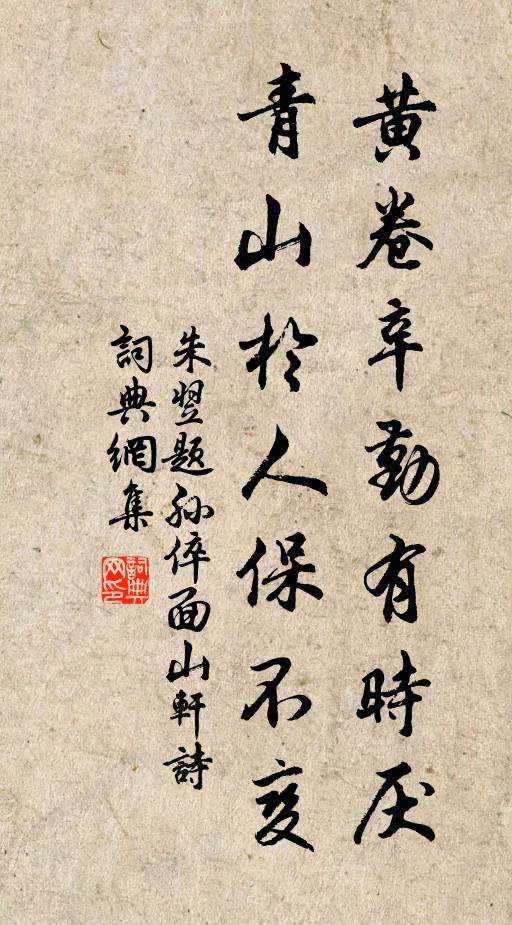 黄卷辛勤有時厌
青山於人保不变
朱翌题孙倅面山軒詩
詞典網集
詞典網印